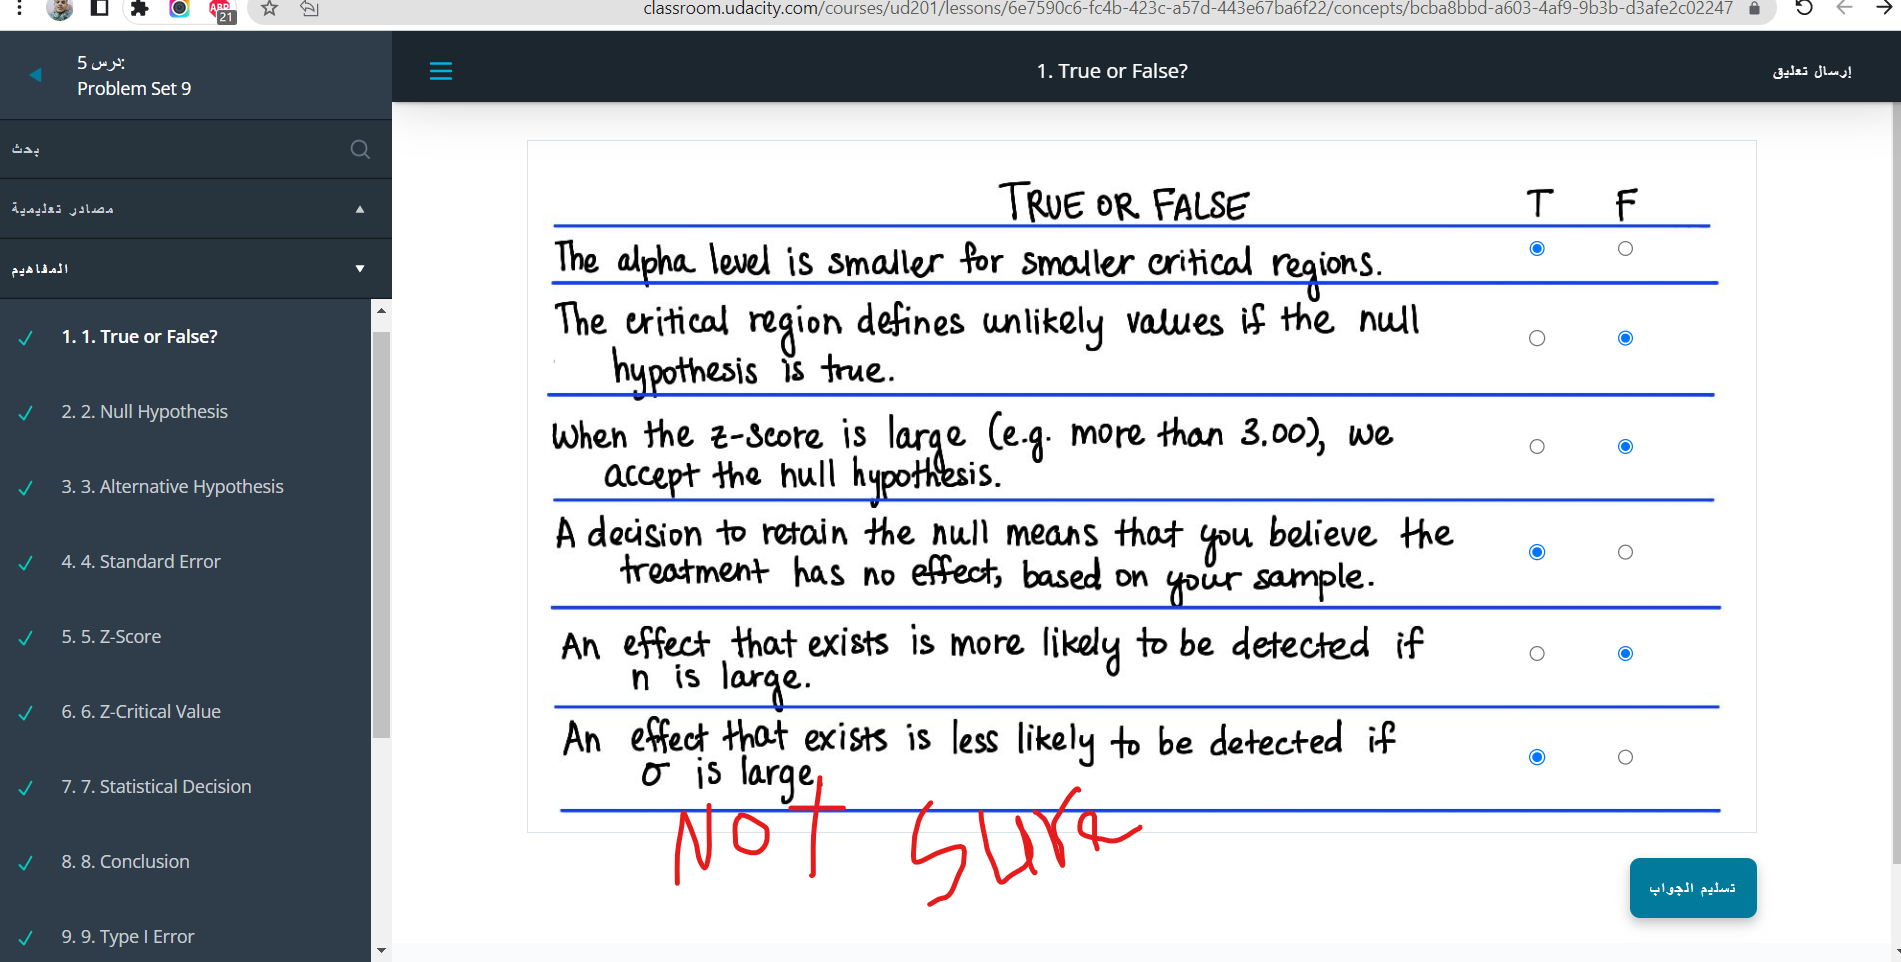 ABP
21
classroom.udacity.com/courses/ud201/lessons/6e7590c6-fc4b-423c-a57d-443e67ba6f22/concepts/bcba8bbd-a603-4af9-9b3b-d3afe2c02247
درس 5:
Problem Set 9
بحث
مصادر تعليمية
المفاهيم
1. 1. True or False?
2. 2. Null Hypothesis
3. 3. Alternative Hypothesis
4. 4. Standard Error
5. 5. Z-Score
6. 6. Z-Critical Value
7. 7. Statistical Decision
8. 8. Conclusion
9. 9. Type I Error
1. True or False?
إرسال تعليق
TRUE OR FALSE T F
The alpha level is smaller for smaller critical regions.
The critical region defines unlikely values if the null
hypothesis is true.
When the z-score is large (e.g. more than 3.00), we
accept the null hypothesis.
A decision to retain the null means that you believe the
treatment has no effect, based on your sample.
An effect that exists is more likely to be detected if
n is large.
An effect that exists is less likely to be detected if
σ is large.
NOT SURe
تسليم الجواب